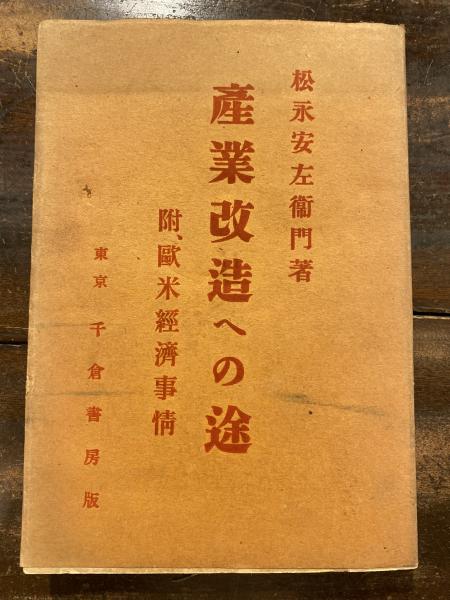 松永安左衞門著
產業改造への途
附、歐米經濟事情
東京 千倉書房版